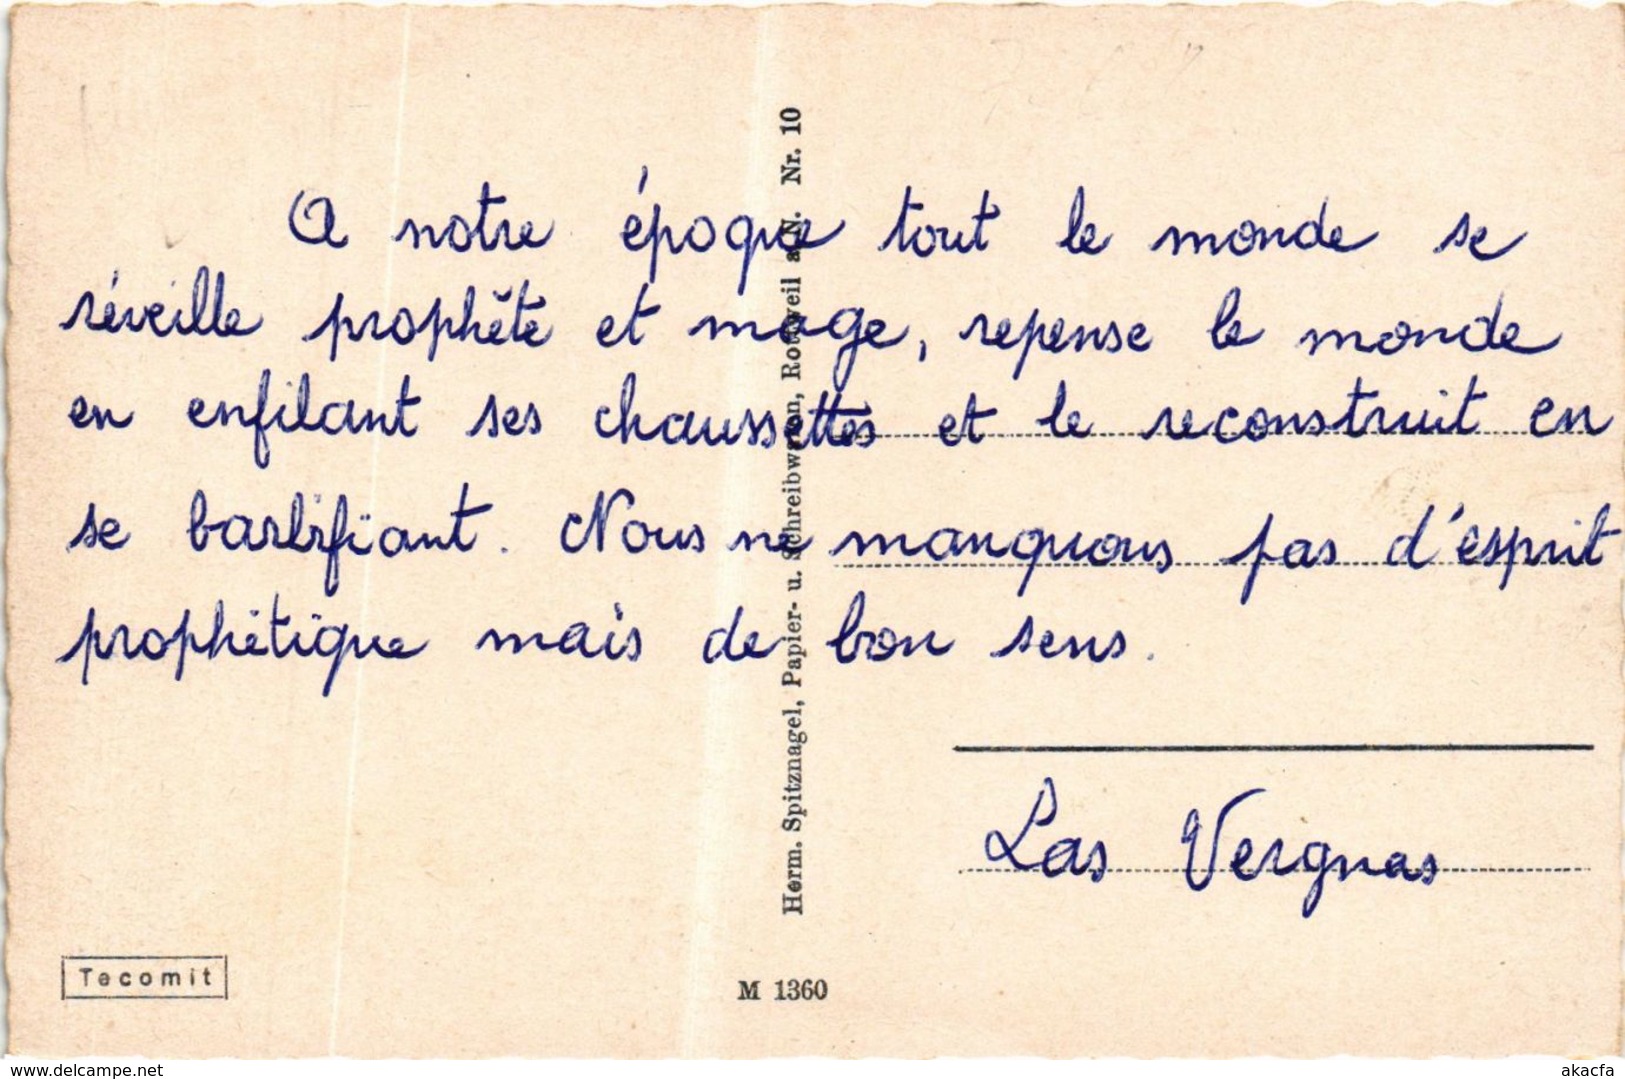 A notre époque tout le monde se
réveille prophète et mage, repense le monde
en enfilant ses chaussettes et le reconstruit en
se barbifiant. Nous ne manquons pas d'esprit
prophétique mais de bon sens.
Las Vergnas
Herm. Spitznagel, Papier- u. Schreibwaren, Rottweil a. N. Nr. 10
Tecomit
M 1360
www.delcampe.net
akacfa